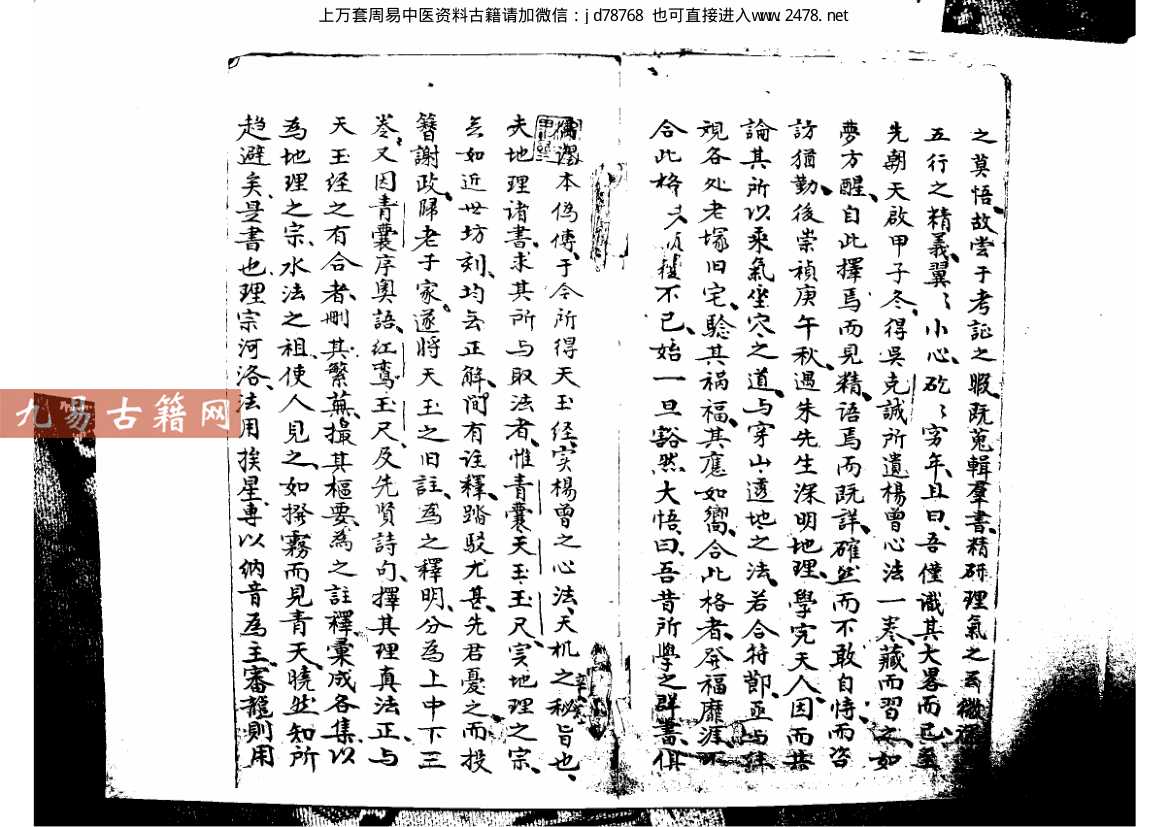 上万套周易中医资料古籍请加微信：jd78768 也可直接进入www.2478.net
之莫悟、故尝于考証之暇、既蒐輯羣書、精研理氣之云微
五行之精義、翼〻小心、矻〻穷年、且曰、吾僅識其大畧而已、至
先朝天啟甲子冬、得吳克誠所遺楊曾心法一卷、藏而習之、如
夢方醒、自此擇焉而見精、语焉而既詳、確然而不敢自恃、而咨
訪猶勤、後崇禎庚午秋、遇朱先生深明地理、學究天人、因而共
論其所以乘氣坐穴之道、与穿山透地之法、若合符節、亟与
覌各处老塚旧宅、騐其禍福、其應如嚮、合此格者、發福靡涯、不
合此格 不已、始一旦豁然大悟曰、吾昔所學之群書、俱
本偽傳、于今所得天玉经、实楊曾之心法、天机之秘旨也、
夫地理诸書、求其所与取法者、惟青囊天玉玉尺、实地理之宗、
云如近世坊刻、均云正解、间有注釋、踏駁尤甚、先君憂之、而投
簪謝政、歸老于家、遂将天玉之旧註、為之釋明、分為上中下三
卷、又因青囊序奥語、红鸾玉尺、及先贤詩句、擇其理真法正、与
天玉经之有合者、刪其繁蕪、撮其樞要、為之註釋、彙成各集、以
為地理之宗、水法之祖、使人見之、如撥霧而見青天、曉然知所
趋避矣、是書也、理宗河洛、法用挨星、專以纳音為主、審龍則用
九易古籍网